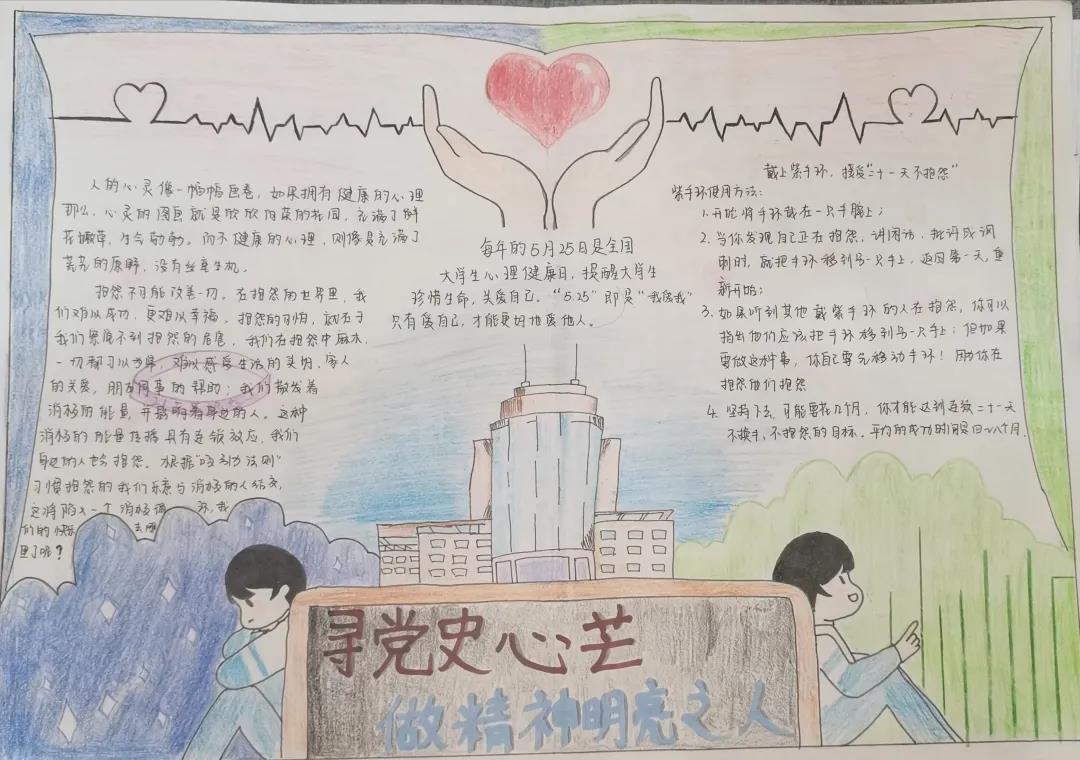 人的心灵像一幅幅画卷，如果拥有健康的心理
那么，心灵的图画就是欣欣向荣的花园，充满了鲜
花嫩草，生气勃勃。而不健康的心理，则像是充满了
荒芜的原野，没有丝毫生机。
抱怨不可能改善一切。在抱怨的世界里，我
们难以成功，更难以幸福。抱怨的习惯，就在于
我们察觉不到抱怨的危害，我们在抱怨中麻木，
一切都习以为常，难以感受生活的美好，家人
的关爱，朋友同事的帮助；我们散发着
消极的能量，开始影响着身边的人。这种
消极的能量传播具有连锁效应，我们
身边的人也会抱怨。根据“吸引力法则”
习惯抱怨的我们乐意与消极的人结交，
这将陷入一个消极循环，我
们的快乐去哪
里了呢？
每年的5月25日是全国
大学生心理健康日，提醒大学生
珍惜生命，关爱自己。“5.25”即是“我爱我”
只有爱自己，才能更好地爱他人。
戴上紫手环，接受“二十一天不抱怨”
紫手环使用方法：
1.开始将手环戴在一只手腕上；
2.当你发现自己正在抱怨，讲闲话、批评或讽
刺时，就把手环移到另一只手上，返回第一天，重
新开始；
3.如果听到其他戴紫手环的人在抱怨，你可以
指出他们应该把手环移到另一只手上；但如果
要做这种事，你自己要先移动手环！因为你在
抱怨他们抱怨
4.坚持下去，可能要花几个月，你才能达到连续二十一天
不换手、不抱怨的目标。平均的成功时间是四~八个月.
寻党史心芒
做精神明亮之人